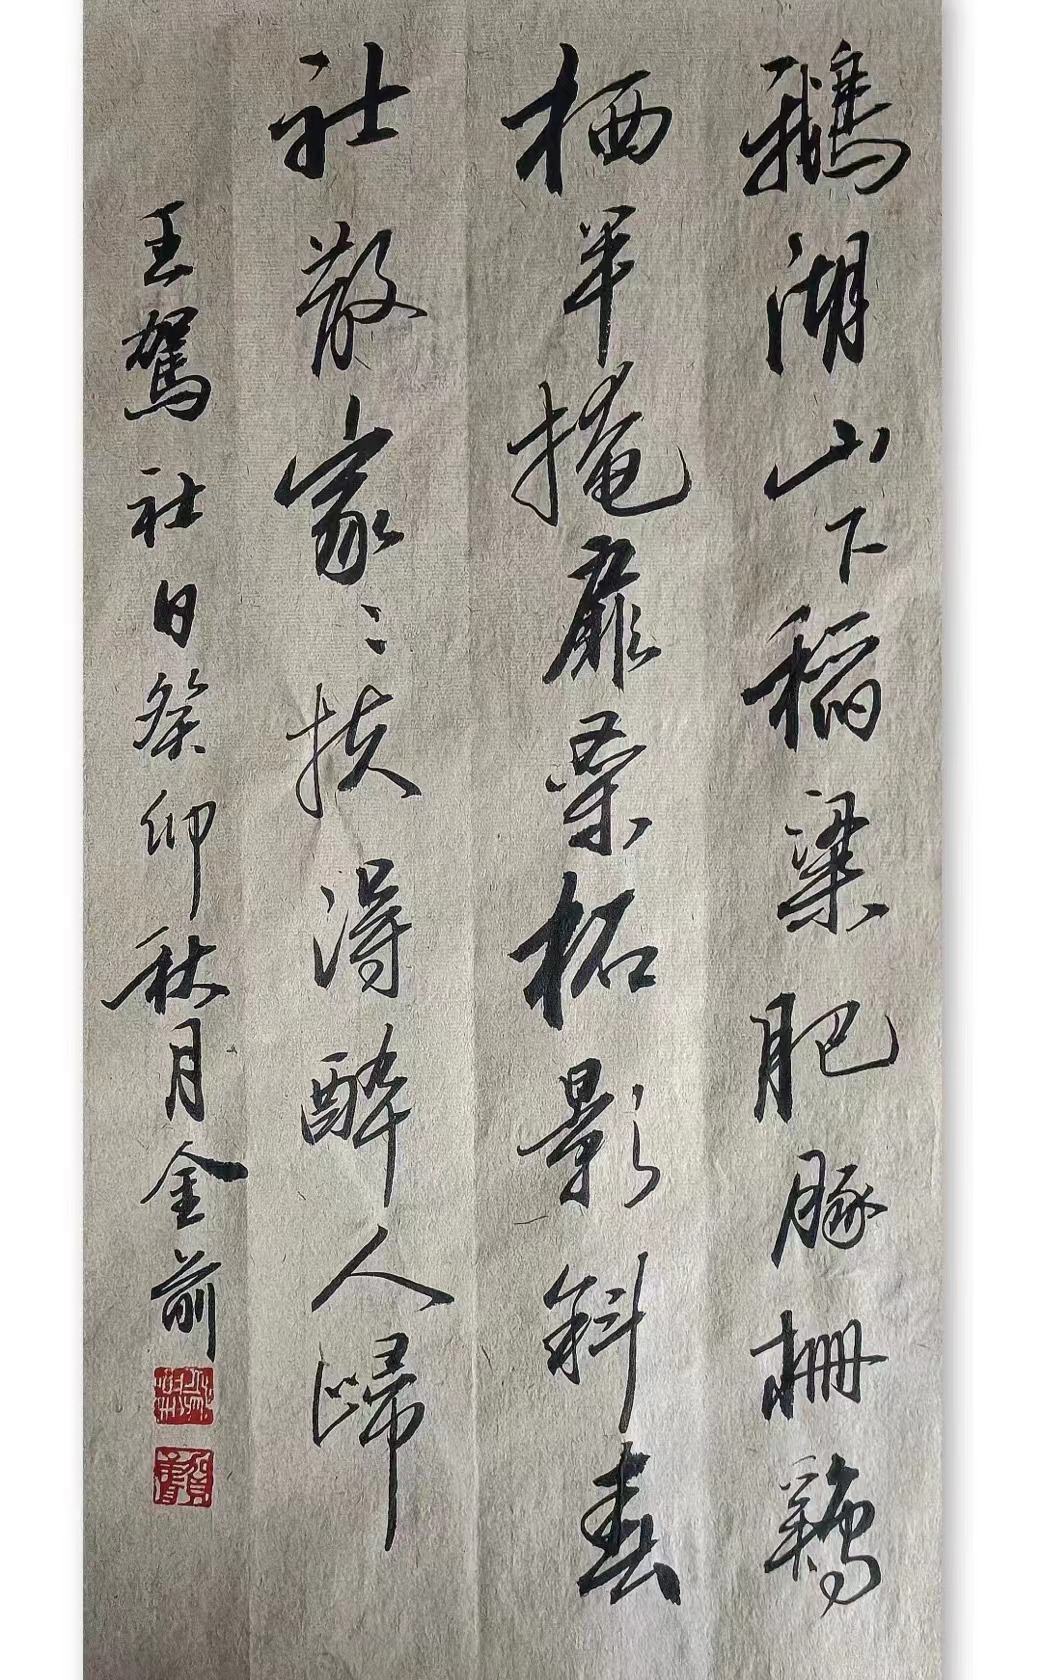 鵝湖山下稻粱肥豚柵鷄
栖半掩扉桑柘影斜春
社散家〻扶得醉人歸
王駕社日癸卯秋月金前